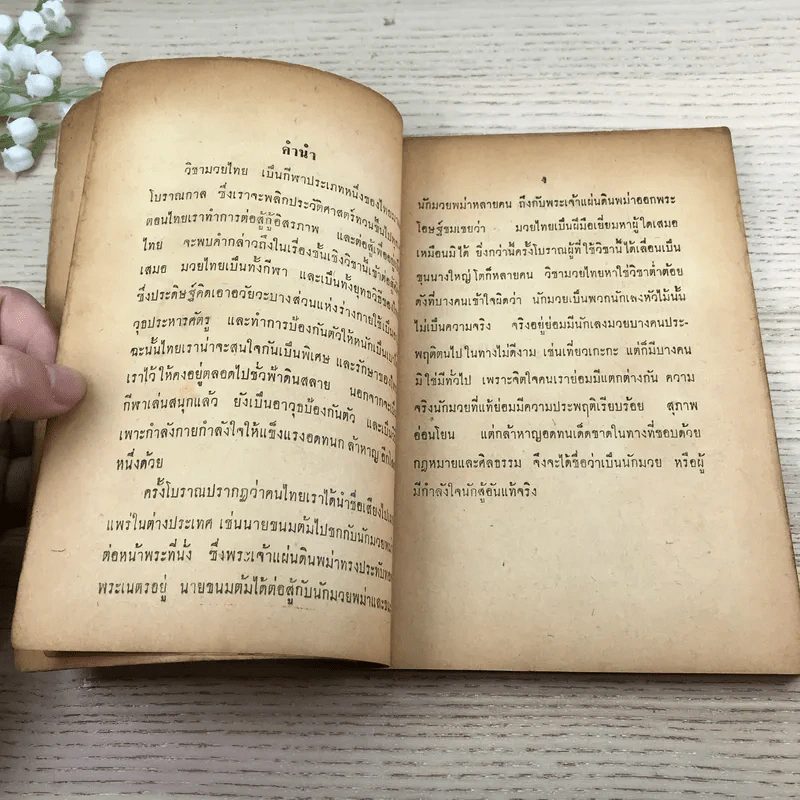 คำนำ
วิชามวยไทย เป็นกีฬาประเภทหนึ่งของไทยมา
โบราณกาล ซึ่งเราจะพลิกประวัติศาสตร์ทวนขึ้นไป
ตอนไทยเราทำการต่อสู้กู้อิสรภาพ และต่อสู้เพื่อ
ไทย จะพบคำกล่าวถึงในเรื่องชั้นเชิงวิชานี้เข้าต่อสู้
เสมอ มวยไทยเป็นทั้งกีฬา และเป็นทั้งยุทธวิธีของ
ซึ่งประดิษฐ์คิดเอาอวัยวะบางส่วนแห่งร่างกายใช้เป็น
วุธประหารศัตรู และทำการป้องกันตัวให้หนักเป็น
ฉะนั้นไทยเราน่าจะสนใจกันเป็นพิเศษ และรักษาของ
เราไว้ให้คงอยู่ตลอดไปชั่วฟ้าดินสลาย นอกจากจะเป็น
กีฬาเล่นสนุกแล้ว ยังเป็นอาวุธป้องกันตัว และเป็น
เพาะกำลังกายกำลังใจให้แข็งแรงอดทนกล้าหาญ
หนึ่งด้วย
ครั้งโบราณปรากฏว่าคนไทยเราได้นำชื่อเสียงไป
แพร่ในต่างประเทศ เช่นนายขนมต้มไปชกกับนักมวย
ต่อหน้าพระที่นั่ง ซึ่งพระเจ้าแผ่นดินพม่าทรงประทับ
พระเนตรอยู่ นายขนมต้มได้ต่อสู้กับนักมวยพม่าและ
ง
นักมวยพม่าหลายคน ถึงกับพระเจ้าแผ่นดินพม่าออกพระ
โอษฐ์ชมเชยว่า มวยไทยเป็นผีมือเยี่ยมหาผู้ใดเสมอ
เหมือนมิได้ ยิ่งกว่านี้ครั้งโบราณผู้ที่ใช้วิชานี้ได้เลื่อนเป็น
ขุนนางใหญ่โตก็หลายคน วิชามวยไทยหาใช้วิชาต่ำต้อย
ดังที่บางคนเข้าใจผิดว่า นักมวยเป็นพวกนักเลงหัวไม้นั้น
ไม่เป็นความจริง จริงอยู่ย่อมมีนักเลงมวยบางคนประ-
พฤติตนไปในทางไม่ดีงาม เช่นเที่ยวเกะกะ แต่ก็มีบางคน
มิใช่มีทั่วไป เพราะจิตใจคนเราย่อมมีแตกต่างกัน ความ
จริงนักมวยที่แท้ย่อมมีความประพฤติเรียบร้อย สุภาพ
อ่อนโยน แต่กล้าหาญอดทนเด็ดขาดในทางที่ชอบด้วย
กฎหมายและศิลธรรม จึงจะได้ชื่อว่าเป็นนักมวย หรือผู้
มีกำลังใจนักสู้อันแท้จริง